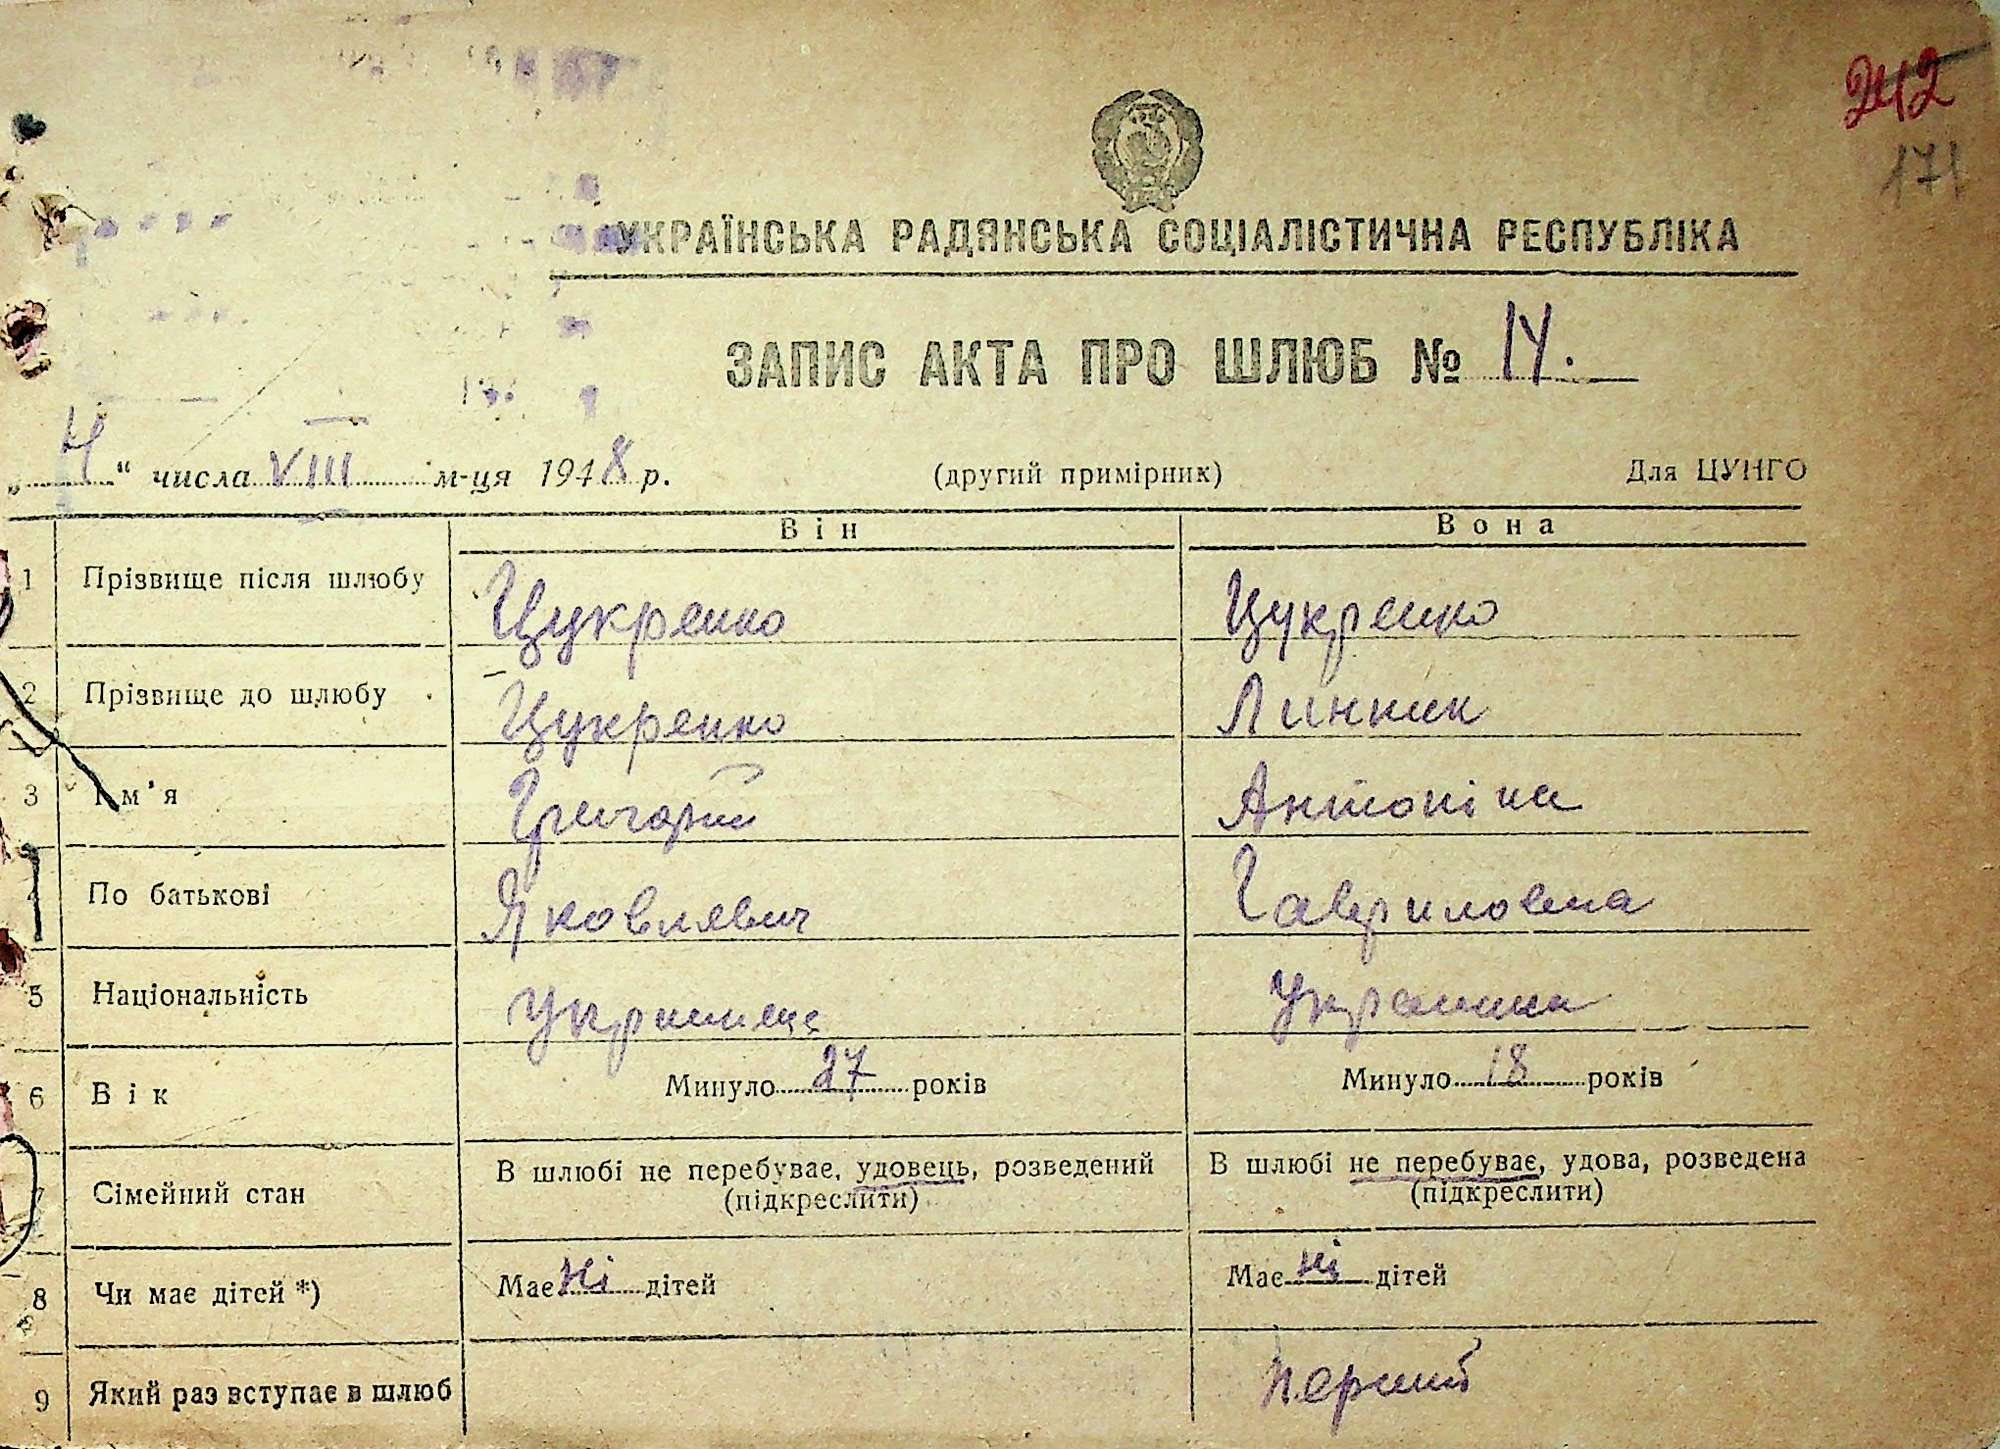 242
171
УКРАЇНСЬКА РАДЯНСЬКА СОЦІАЛІСТИЧНА РЕСПУБЛІКА
ЗАПИС АКТА ПРО ШЛЮБ № 14.
„4“ числа VIII м-ця 1948 р. (другий примірник) Для ЦУНГО
Він Вона
1 Прізвище після шлюбу Цукренко Цукренко
2 Прізвище до шлюбу Цукренко Линник
3 Ім'я Григорий Антоніна
4 По батькові Яковлевич Гавриловна
5 Національність Українець Українка
6 Вік Минуло 27 років Минуло 18 років
7 Сімейний стан В шлюбі не перебуває, удовець, розведений В шлюбі не перебуває, удова, розведена
(підкреслити) (підкреслити)
8 Чи має дітей *) Має ні дітей Має ні дітей
9 Який раз вступає в шлюб перший